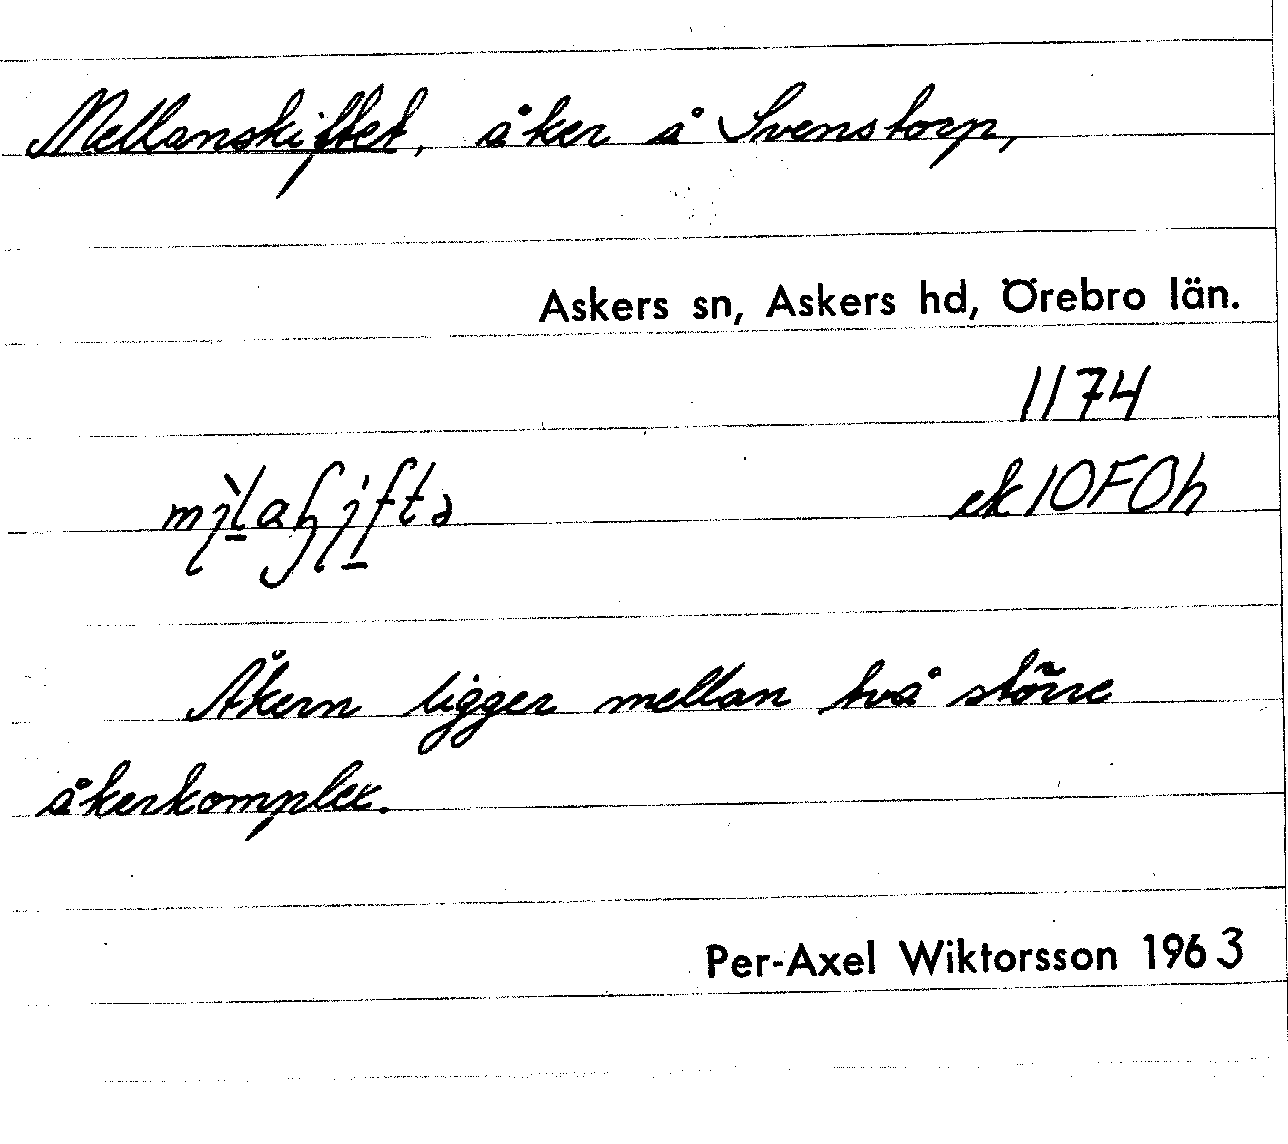 Mellanskiftet, åker å Svenstorp,
Askers sn, Askers hd, Örebro län.
1174
ek 10F0h
Åkern ligger mellan två större
åkerkomplex.
Per-Axel Wiktorsson 1963